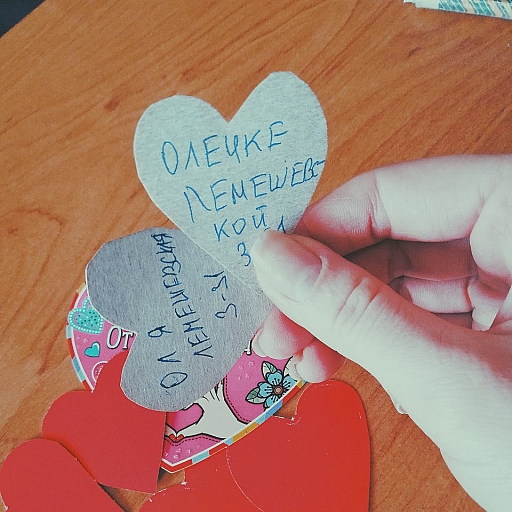 ОЛЕЧКЕ
ЛЕМЕШЕВС
КОЙ
3
ОЛЯ
ЛЕМЕШЕВСКАЯ
3-Я
ОТ